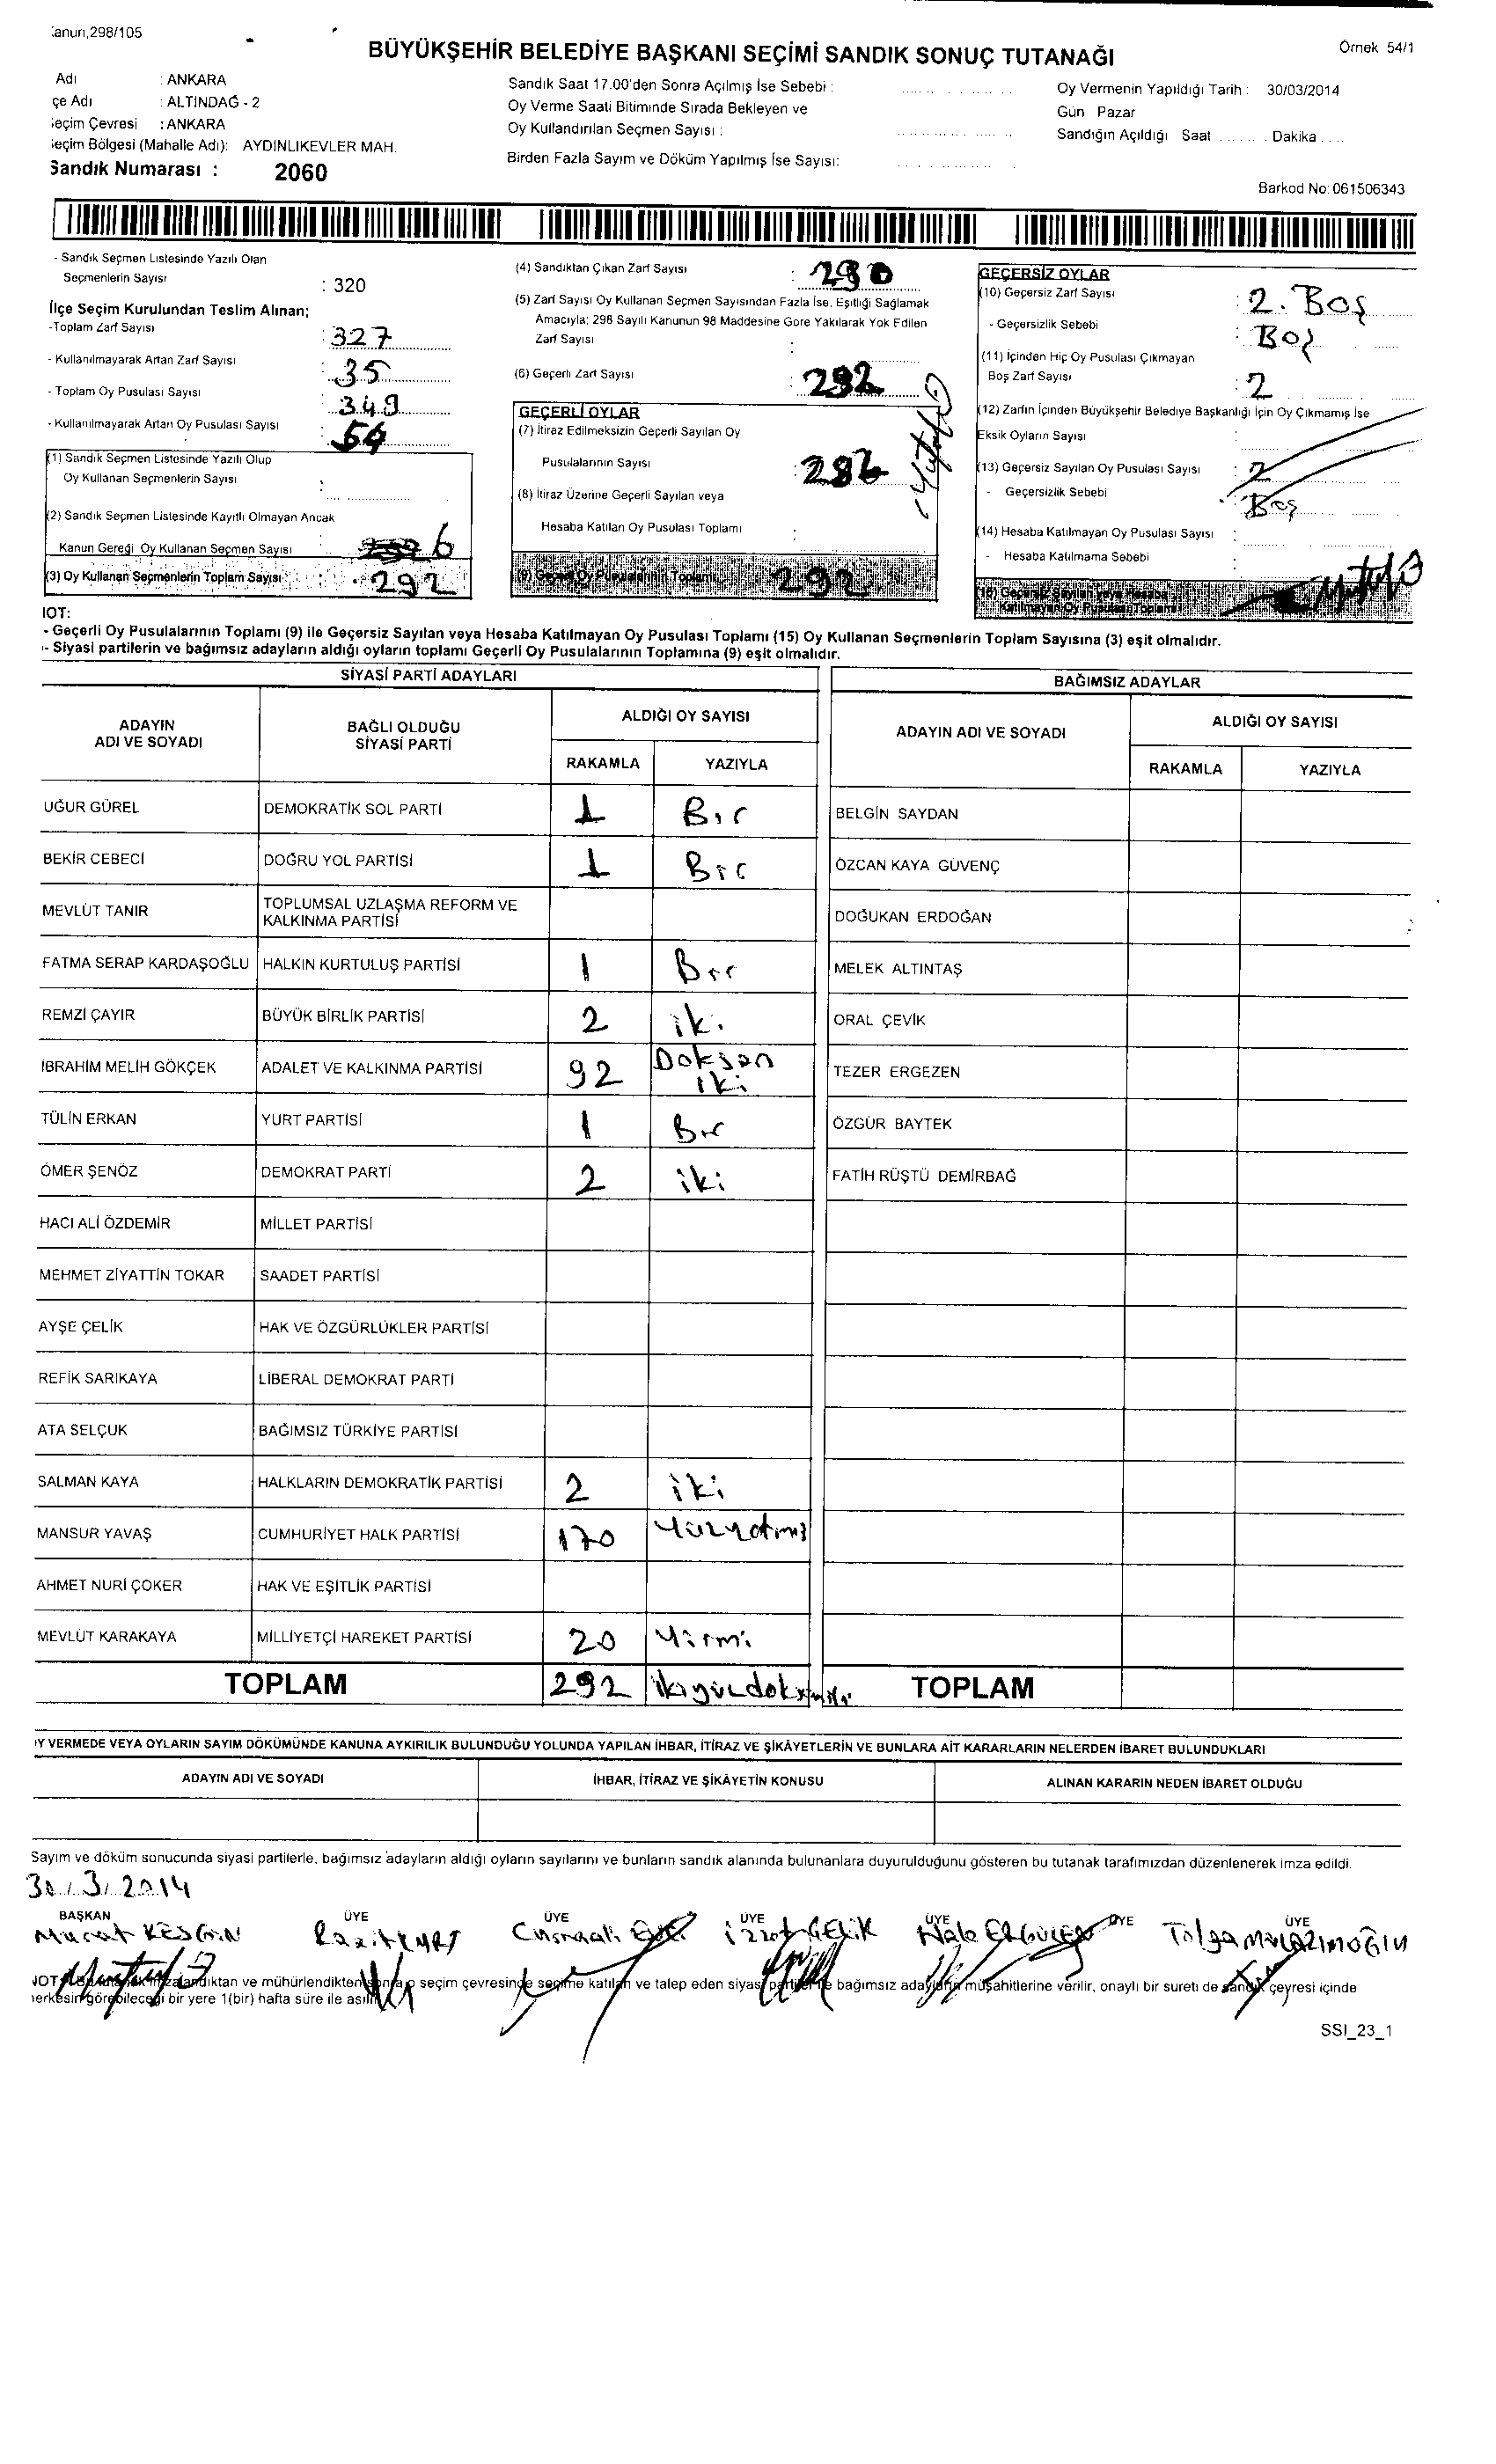 Kanun,298/105
BÜYÜKŞEHİR BELEDİYE BAŞKANI SEÇİMİ SANDIK SONUÇ TUTANAĞI
Örnek 54/1
Adı : ANKARA
çe Adı : ALTINDAĞ - 2
eçim Çevresi : ANKARA
eçim Bölgesi (Mahalle Adı): AYDINLIKEVLER MAH.
Sandık Numarası : 2060
Sandık Saat 17.00'den Sonra Açılmış İse Sebebi :
Oy Verme Saati Bitiminde Sırada Bekleyen ve
Oy Kullandırılan Seçmen Sayısı :
Birden Fazla Sayım ve Döküm Yapılmış İse Sayısı:
Oy Vermenin Yapıldığı Tarih : 30/03/2014
Gün Pazar
Sandığın Açıldığı Saat ........ Dakika ....
Barkod No: 061506343
- Sandık Seçmen Listesinde Yazılı Olan
Seçmenlerin Sayısı : 320
İlçe Seçim Kurulundan Teslim Alınan;
-Toplam Zarf Sayısı : 327
- Kullanılmayarak Artan Zarf Sayısı : 35
- Toplam Oy Pusulası Sayısı : 349
- Kullanılmayarak Artan Oy Pusulası Sayısı :
(1) Sandık Seçmen Listesinde Yazılı Olup
Oy Kullanan Seçmenlerin Sayısı :
(2) Sandık Seçmen Listesinde Kayıtlı Olmayan Ancak
Kanun Gereği Oy Kullanan Seçmen Sayısı : 6
(3) Oy Kullanan Seçmenlerin Toplam Sayısı : 292
(4) Sandıktan Çıkan Zarf Sayısı : 290
(5) Zarf Sayısı Oy Kullanan Seçmen Sayısından Fazla İse, Eşitliği Sağlamak
Amacıyla; 298 Sayılı Kanunun 98 Maddesine Göre Yakılarak Yok Edilen
Zarf Sayısı :
(6) Geçerli Zarf Sayısı : 292
GEÇERLİ OYLAR
(7) İtiraz Edilmeksizin Geçerli Sayılan Oy
Pusulalarının Sayısı :
(8) İtiraz Üzerine Geçerli Sayılan veya
Hesaba Katılan Oy Pusulası Toplamı :
(9) Geçerli Oy Pusulalarının Toplamı 292
GEÇERSİZ OYLAR
(10) Geçersiz Zarf Sayısı : 2. Boş
- Geçersizlik Sebebi : Boş
(11) İçinden Hiç Oy Pusulası Çıkmayan
Boş Zarf Sayısı : 2
(12) Zarfın İçinden Büyükşehir Belediye Başkanlığı İçin Oy Çıkmamış İse
Eksik Oyların Sayısı :
(13) Geçersiz Sayılan Oy Pusulası Sayısı : 2
- Geçersizlik Sebebi : Boş
(14) Hesaba Katılmayan Oy Pusulası Sayısı :
- Hesaba Katılmama Sebebi :
(15) Geçersiz Sayılan veya Hesaba
Katılmayan Oy Pusulası Toplamı
IOT:
- Geçerli Oy Pusulalarının Toplamı (9) ile Geçersiz Sayılan veya Hesaba Katılmayan Oy Pusulası Toplamı (15) Oy Kullanan Seçmenlerin Toplam Sayısına (3) eşit olmalıdır.
- Siyasi partilerin ve bağımsız adayların aldığı oyların toplamı Geçerli Oy Pusulalarının Toplamına (9) eşit olmalıdır.
SİYASİ PARTİ ADAYLARI
ADAYIN ADI VE SOYADI BAĞLI OLDUĞU SİYASİ PARTİ ALDIĞI OY SAYISI
RAKAMLA YAZIYLA
UĞUR GÜREL DEMOKRATİK SOL PARTİ 1 Bir
BEKİR CEBECİ DOĞRU YOL PARTİSİ 1 Bir
MEVLÜT TANIR TOPLUMSAL UZLAŞMA REFORM VE KALKINMA PARTİSİ
FATMA SERAP KARDAŞOĞLU HALKIN KURTULUŞ PARTİSİ 1 Bir
REMZİ ÇAYIR BÜYÜK BİRLİK PARTİSİ 2 iki
İBRAHİM MELİH GÖKÇEK ADALET VE KALKINMA PARTİSİ 92 Doksan iki
TÜLİN ERKAN YURT PARTİSİ 1 Bir
ÖMER ŞENÖZ DEMOKRAT PARTİ 2 iki
HACI ALİ ÖZDEMİR MİLLET PARTİSİ
MEHMET ZİYATTİN TOKAR SAADET PARTİSİ
AYŞE ÇELİK HAK VE ÖZGÜRLÜKLER PARTİSİ
REFİK SARIKAYA LİBERAL DEMOKRAT PARTİ
ATA SELÇUK BAĞIMSIZ TÜRKİYE PARTİSİ
SALMAN KAYA HALKLARIN DEMOKRATİK PARTİSİ 2 iki
MANSUR YAVAŞ CUMHURİYET HALK PARTİSİ 170 Yüzyetmiş
AHMET NURİ ÇOKER HAK VE EŞİTLİK PARTİSİ
MEVLÜT KARAKAYA MİLLİYETÇİ HAREKET PARTİSİ 20 Yirmi
TOPLAM 292 ikiyüzdoksaniki
BAĞIMSIZ ADAYLAR
ADAYIN ADI VE SOYADI ALDIĞI OY SAYISI
RAKAMLA YAZIYLA
BELGİN SAYDAN
ÖZCAN KAYA GÜVENÇ
DOĞUKAN ERDOĞAN
MELEK ALTINTAŞ
ORAL ÇEVİK
TEZER ERGEZEN
ÖZGÜR BAYTEK
FATİH RÜŞTÜ DEMİRBAĞ
TOPLAM
Y VERMEDE VEYA OYLARIN SAYIM DÖKÜMÜNDE KANUNA AYKIRILIK BULUNDUĞU YOLUNDA YAPILAN İHBAR, İTİRAZ VE ŞİKÂYETLERİN VE BUNLARA AİT KARARLARIN NELERDEN İBARET BULUNDUKLARI
ADAYIN ADI VE SOYADI İHBAR, İTİRAZ VE ŞİKÂYETİN KONUSU ALINAN KARARIN NEDEN İBARET OLDUĞU
Sayım ve döküm sonucunda siyasi partilerle, bağımsız adayların aldığı oyların sayılarını ve bunların sandık alanında bulunanlara duyurulduğunu gösteren bu tutanak tarafımızdan düzenlenerek imza edildi.
30/3/2014
BAŞKAN ÜYE ÜYE ÜYE ÜYE ÜYE ÜYE
Murat KESGİN Razi KURT İzzet ÇELİK Hale Tolga
NOT: Bu tutanak imzalandıktan ve mühürlendikten sonra o seçim çevresinde seçime katılan ve talep eden siyasi partiler ile bağımsız adayların müşahitlerine verilir, onaylı bir sureti de sandık çevresi içinde
herkesin görebileceği bir yere 1(bir) hafta süre ile asılır.
SSI_23_1